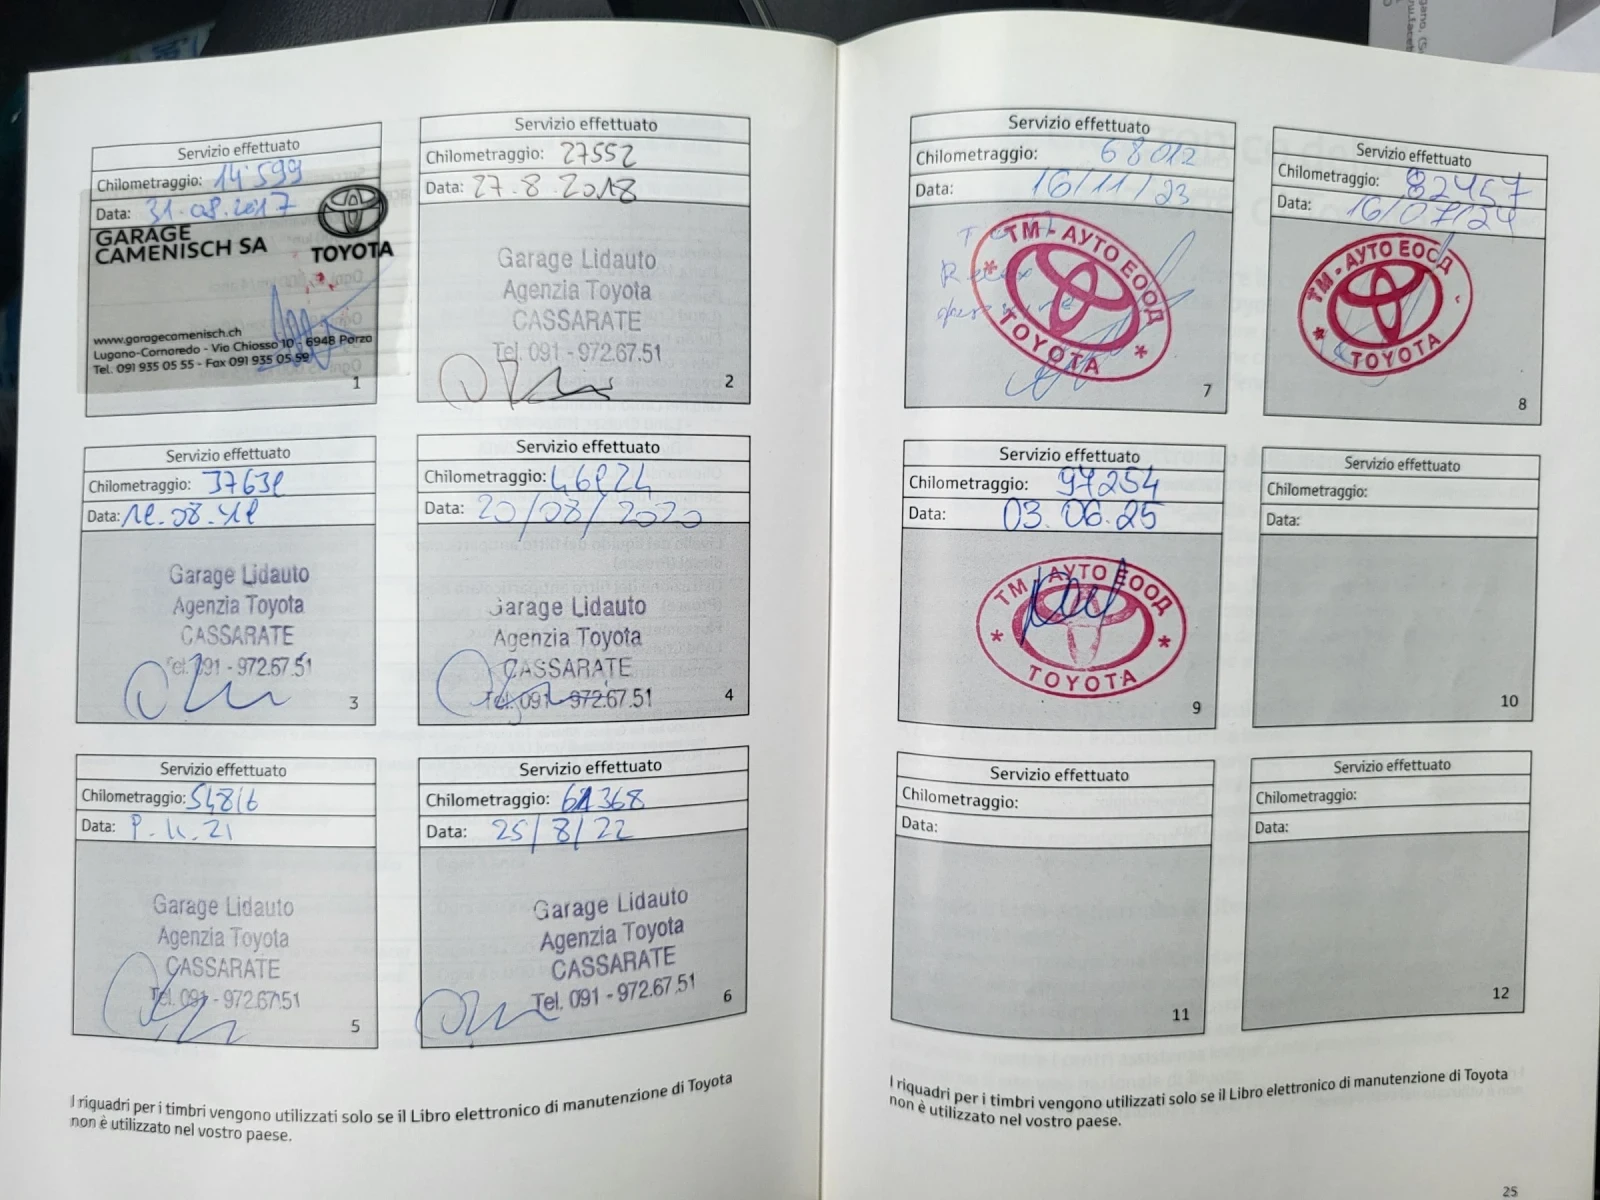 Servizio effettuato
Chilometraggio: 14'599
Data: 31.08.2017
GARAGE
CAMENISCH SA
TOYOTA
www.garagecamenisch.ch
Lugano-Cornaredo - Via Chiosso 10 - 6948 Porza
Tel. 091 935 05 55 - Fax 091 935 05 59
1
Servizio effettuato
Chilometraggio: 27552
Data: 27.8.2018
Garage Lidauto
Agenzia Toyota
CASSARATE
Tel. 091 - 972.67.51
2
Servizio effettuato
Chilometraggio:
Data:
Garage Lidauto
Agenzia Toyota
CASSARATE
Tel. 091 - 972.67.51
3
Servizio effettuato
Chilometraggio:
Data: 20/08/2020
Garage Lidauto
Agenzia Toyota
CASSARATE
Tel. 091 - 972.67.51
4
Servizio effettuato
Chilometraggio: 54816
Data:
Garage Lidauto
Agenzia Toyota
CASSARATE
Tel. 091 - 972.67.51
5
Servizio effettuato
Chilometraggio: 61368
Data: 25/8/22
Garage Lidauto
Agenzia Toyota
CASSARATE
Tel. 091 - 972.67.51
6
I riquadri per i timbri vengono utilizzati solo se il Libro elettronico di manutenzione di Toyota
non è utilizzato nel vostro paese.
Servizio effettuato
Chilometraggio: 68012
Data: 16/11/23
ТМ - АУТО ЕООД
TOYOTA
7
Servizio effettuato
Chilometraggio: 82457
Data: 16/07/24
ТМ - АУТО ЕООД
TOYOTA
8
Servizio effettuato
Chilometraggio: 97254
Data: 03.06.25
ТМ АУТО ЕООД
TOYOTA
9
Servizio effettuato
Chilometraggio:
Data:
10
Servizio effettuato
Chilometraggio:
Data:
11
Servizio effettuato
Chilometraggio:
Data:
12
I riquadri per i timbri vengono utilizzati solo se il Libro elettronico di manutenzione di Toyota
non è utilizzato nel vostro paese.
25